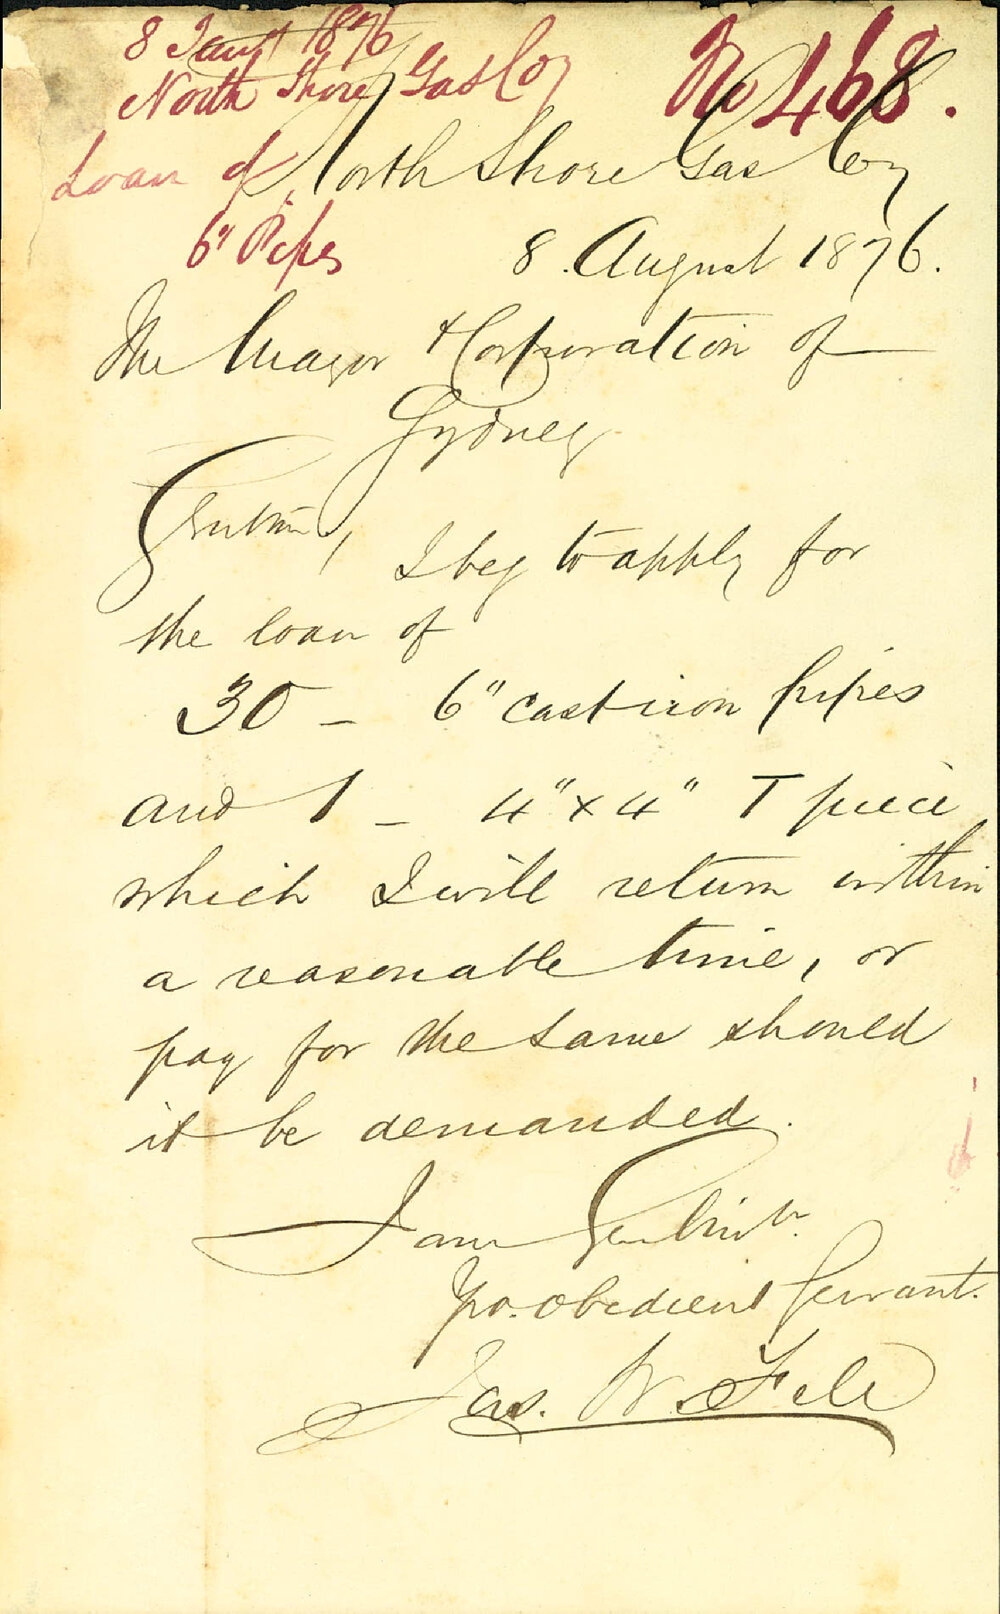 8 Jany 1876
North Shore Gas Coy
No 468.
Loan of
6" Pipes
North Shore Gas Coy
8. August 1876.
The Mayor & Corporation of
Sydney
Gentmn,
I beg to apply for
the loan of
30 - 6" cast iron pipes
and 1 - 4" x 4" T piece
which I will return within
a reasonable time, or
pay for the same should
it be demanded.
I am Gentmn
Yr. obedient Servant.
Jas. W. Fell